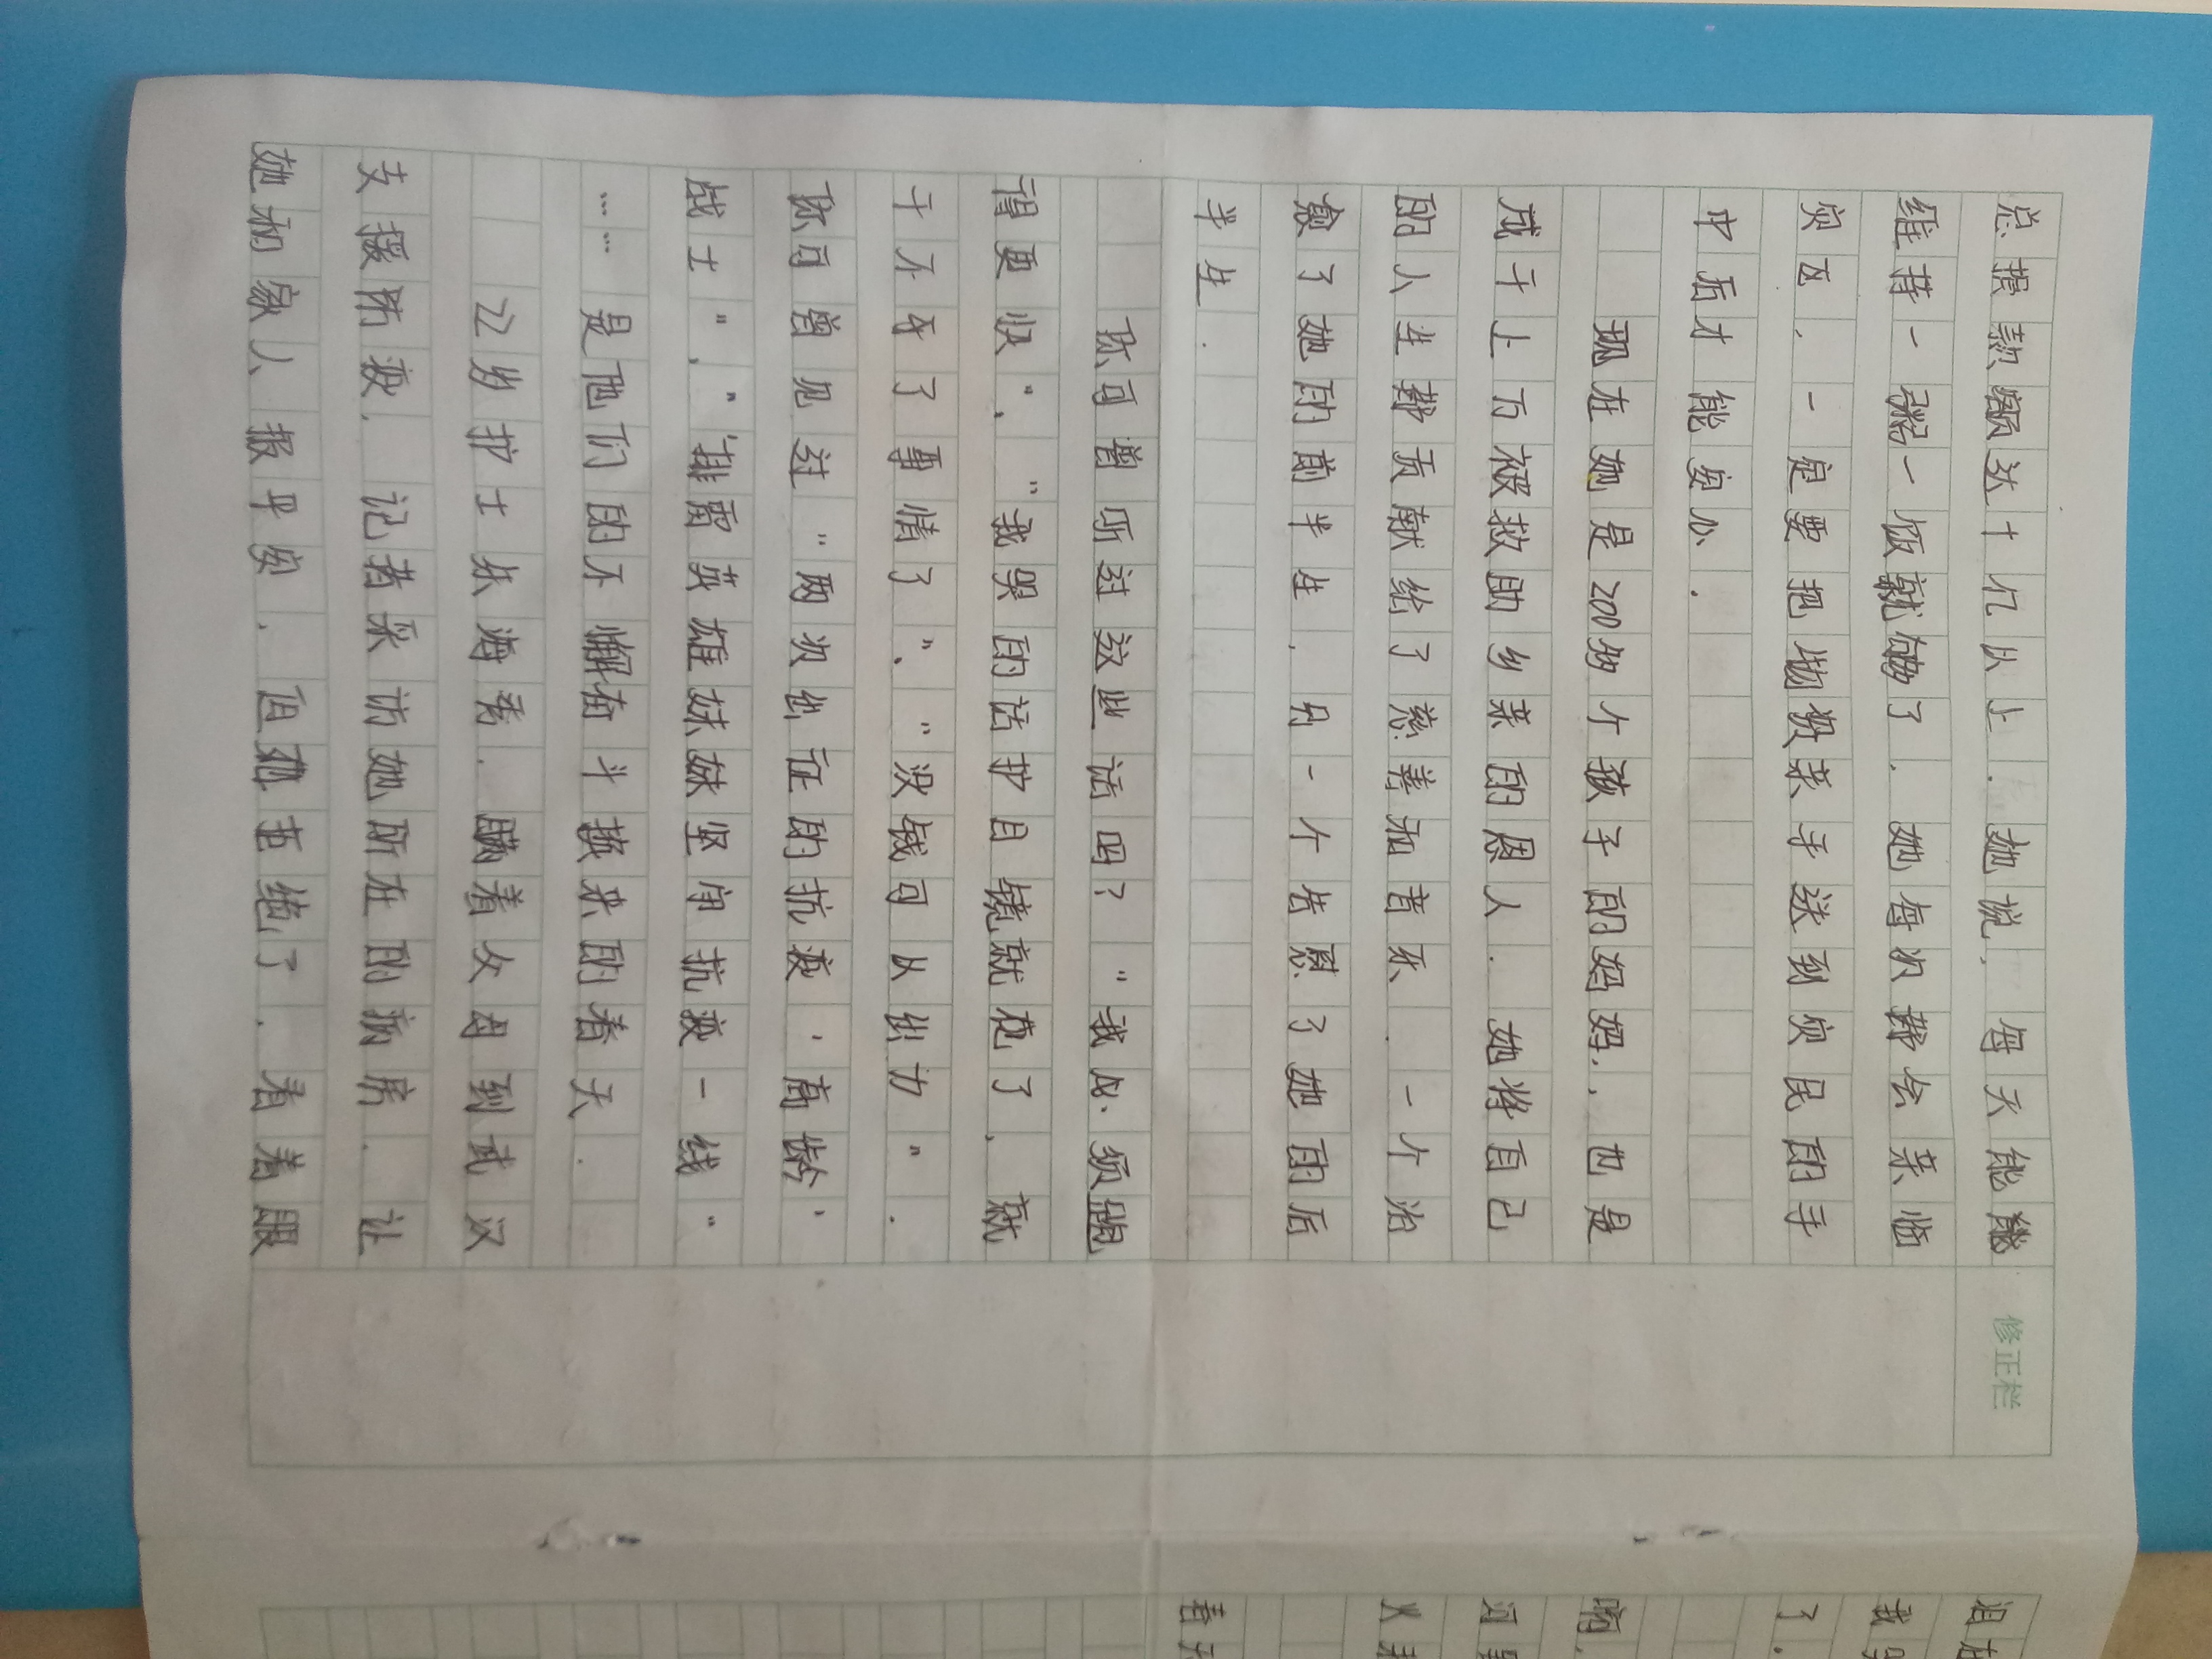 总捐款额达十亿以上。她说,每天能
维持一粥一饭就够了。她每次都会亲临
灾区,一定要把物资亲手送到灾民的手
中后才能安心。
现在她是200多个孩子的妈妈,也是
成千上万被救助乡亲的恩人。她将自己
的人生都贡献给了慈善和音乐。一个治
愈了她的前半生,另一个告慰了她的后
半生。
你可曾听过这些话吗?“我必须跑
得更快”、“我哭的话护目镜就花了,就
干不了事情了”、“没钱可以出力”。
你可曾见过“两次出征的抗疫高龄
战士”、“排雷英雄妹妹坚守抗疫一线”
……是他们的不懈奋斗换来的春天。
22岁护士朱海秀。瞒着父母到武汉
支援防疫,记者采访她所在的病房。让
她和家人报平安,但她拒绝了。看着眼
修正栏
泪
我
了。
响,
春天